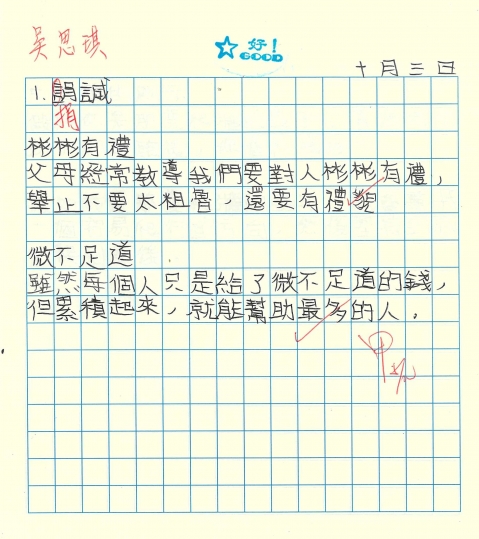 吳思琪
好!
GOOD
十月三日
1. 誠
捐
彬彬有禮
父母經常教導我們要對人彬彬有禮,
舉止不要太粗魯,還要有禮貌
微不足道
雖然每個人只是給了微不足道的錢,
但累積起來,就能幫助最多的人.
甲